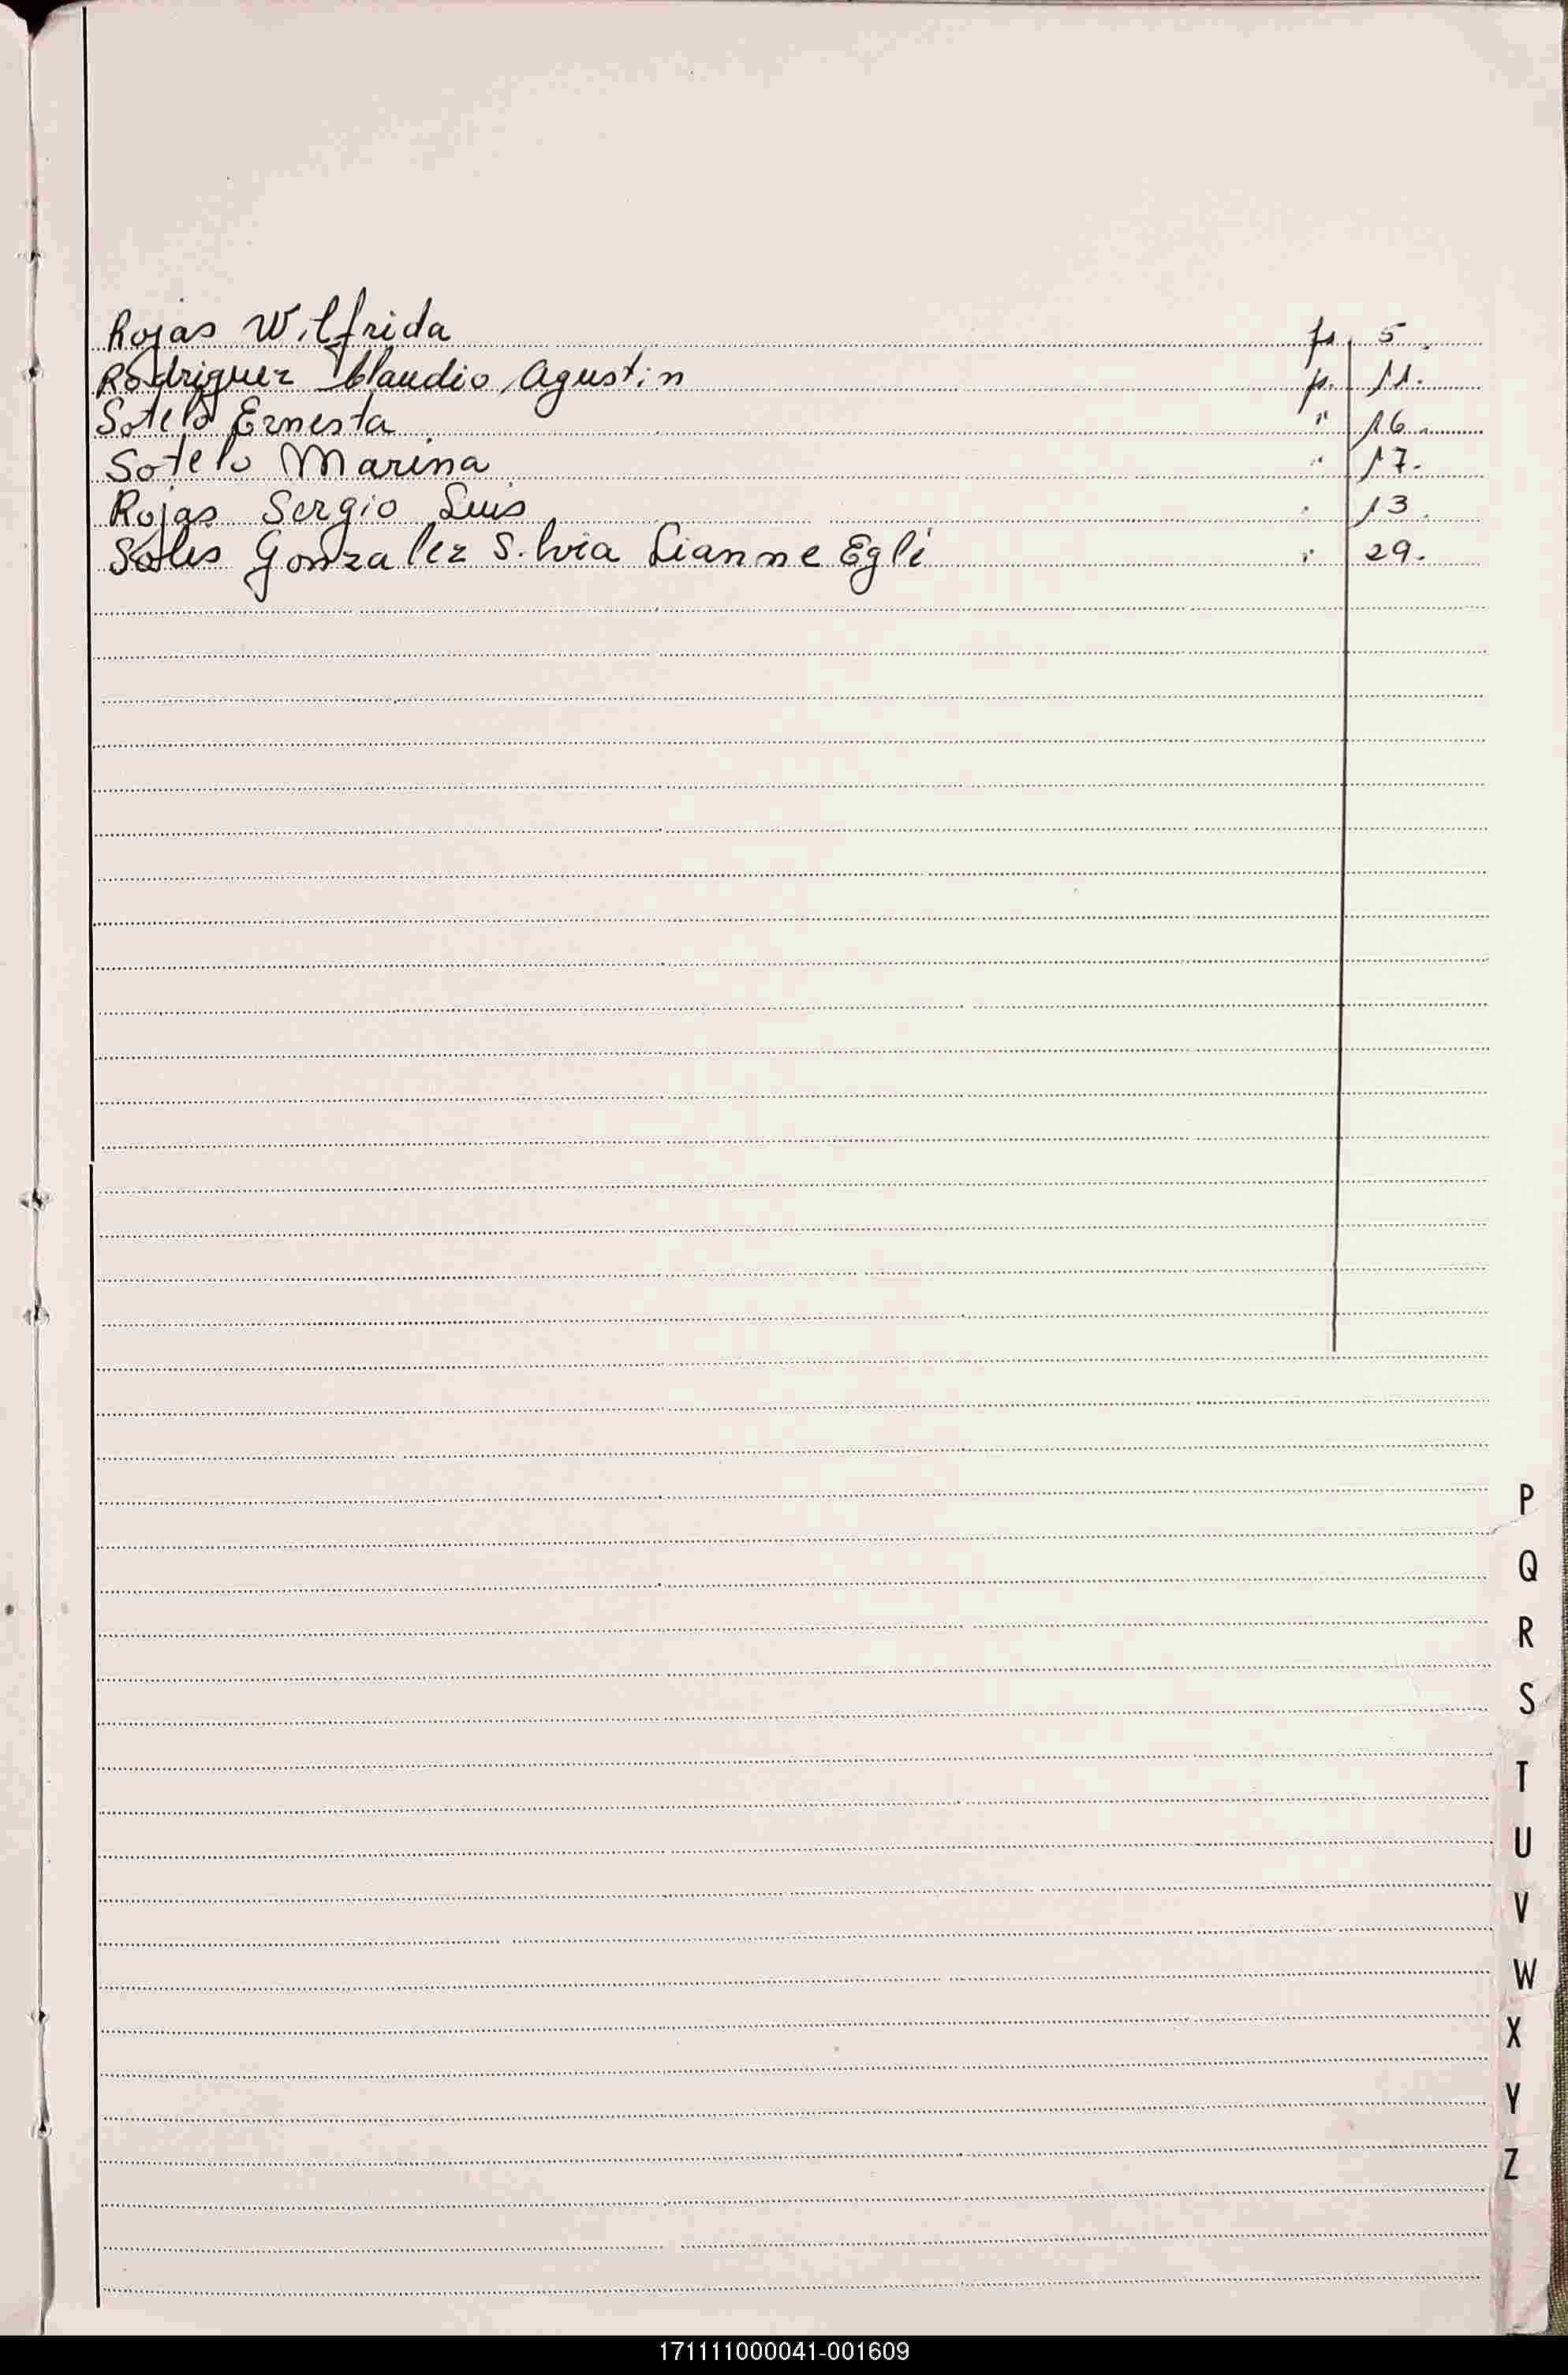 Rojas Wilfrida fs. 5.
Rodriguez Claudio Agustin fs. 11.
Sotelo Ernesta " 16.
Sotelo Marina " 17.
Rojas Sergio Luis " 13.
Solis Gonzalez Silvia Lianne Egle " 29.
P
Q
R
S
T
U
V
W
X
Y
Z
171111000041-001609